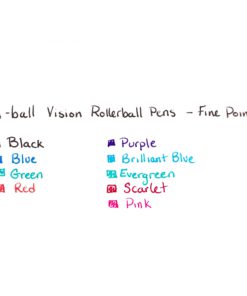 -ball Vision Rollerball Pens - Fine Poin
Black
Blue
Green
Red
Purple
Brilliant Blue
Evergreen
Scarlet
Pink